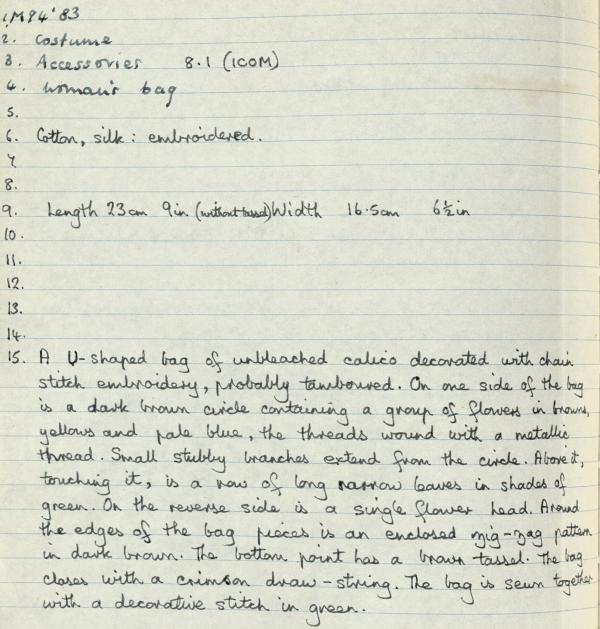 1. M94'83
2. Costume
3. Accessories 8.1 (ICOM)
4. Woman's bag
5.
6. Cotton, silk: embroidered.
7
8.
9. Length 23cm 9in (without tassel) Width 16.5cm 6½in
10.
11.
12.
13.
14.
15. A U-shaped bag of unbleached calico decorated with chain
stitch embroidery, probably tamboured. On one side of the bag
is a dark brown circle containing a group of flowers in browns,
yellows and pale blue, the threads wound with a metallic
thread. Small stubby branches extend from the circle. Above it,
touching it, is a row of long narrow leaves in shades of
green. On the reverse side is a single flower head. Around
the edges of the bag pieces is an enclosed zig-zag pattern
in dark brown. The bottom point has a brown tassel. The bag
closes with a crimson draw-string. The bag is sewn together
with a decorative stitch in green.